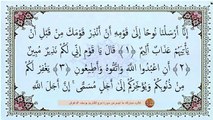 إِنَّا أَرْسَلْنَا نُوحًا إِلَى قَوْمِهِ أَنْ أَنْذِرْ قَوْمَكَ مِنْ قَبْلِ أَنْ
يَأْتِيَهُمْ عَذَابٌ أَلِيمٌ ﴿١﴾ قَالَ يَا قَوْمِ إِنِّي لَكُمْ نَذِيرٌ مُبِينٌ
﴿٢﴾ أَنِ اعْبُدُوا اللَّهَ وَاتَّقُوهُ وَأَطِيعُونِ ﴿٣﴾ يَغْفِرْ لَكُمْ
مِنْ ذُنُوبِكُمْ وَيُؤَخِّرْكُمْ إِلَى أَجَلٍ مُسَمًّى ۚ إِنَّ أَجَلَ اللَّهِ